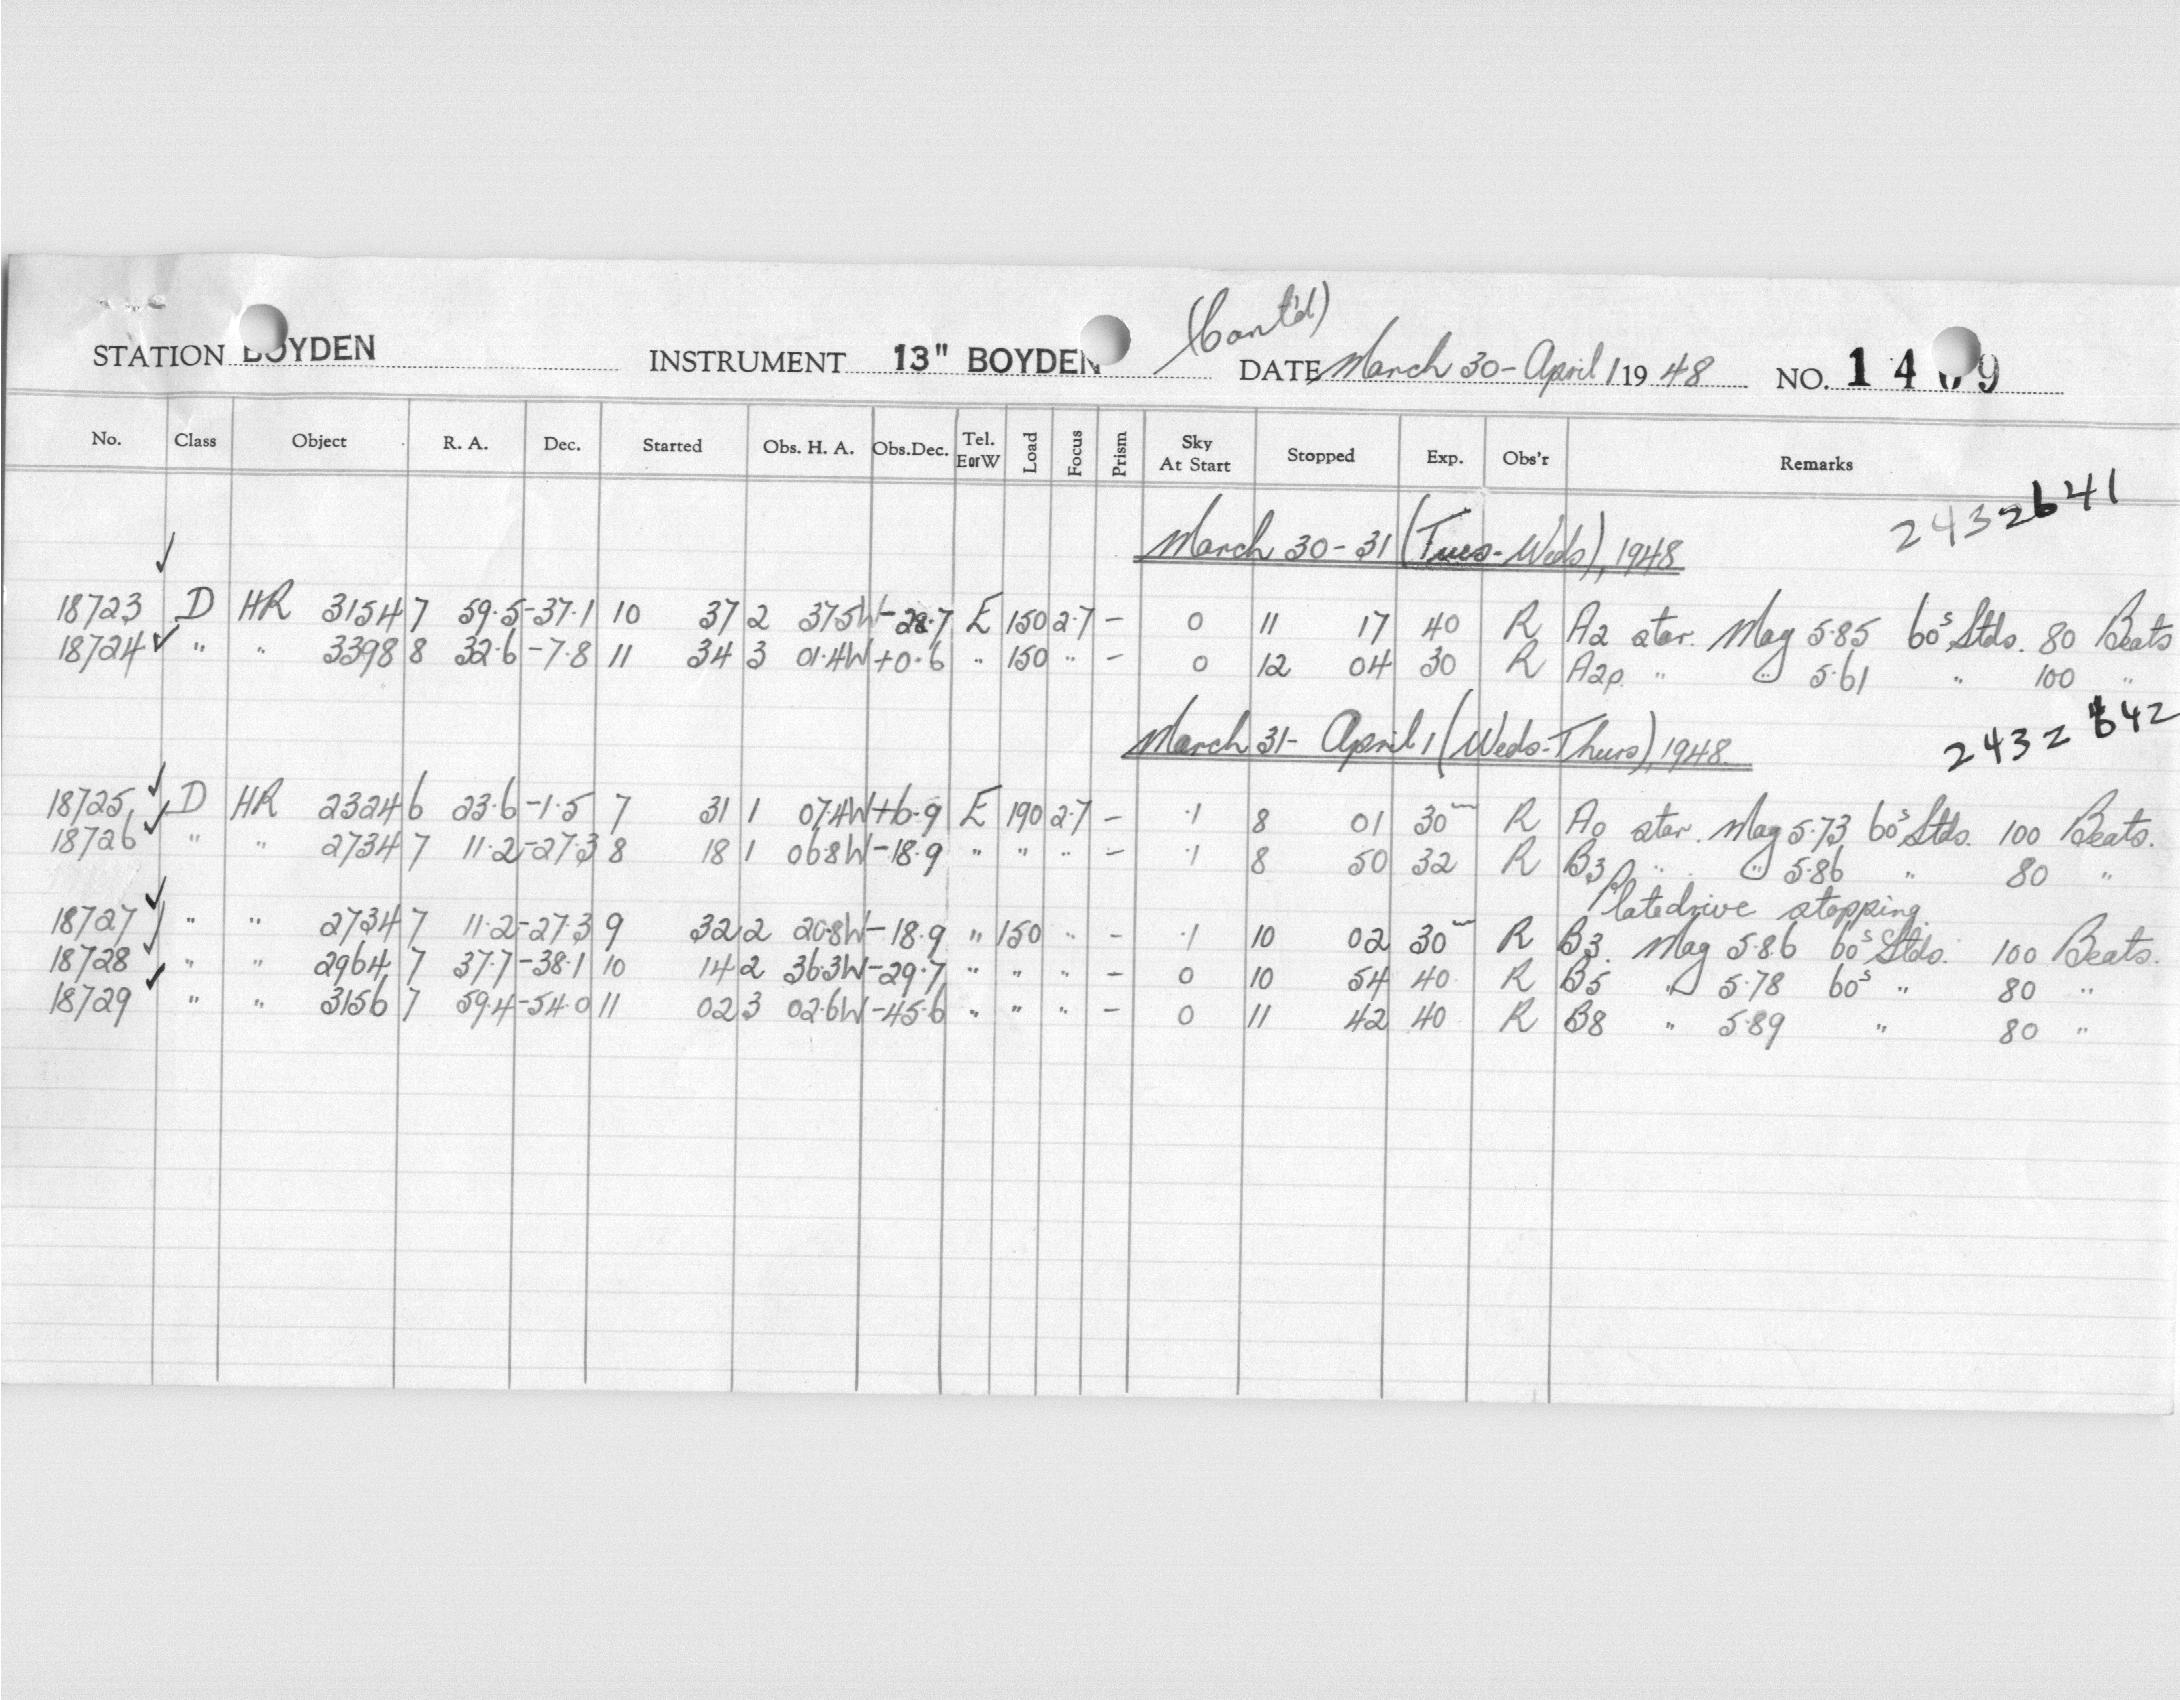 (Cont'd)
STATION BOYDEN INSTRUMENT 13" BOYDEN DATE March 30 - April 1 1948 NO. 14 9
No. Class Object R. A. Dec. Started Obs. H. A. Obs.Dec. Tel. E or W Load Focus Prism Sky At Start Stopped Exp. Obs'r Remarks
2432641
March 30 - 31 (Tues - Weds), 1948
18723 D HR 3154 7 59.5 -37.1 10 37 2 37.5W -28.7 E 150 2.7 - 0 11 17 40 R A2 star. Mag 5.85 60s Stds. 80 Beats
18724 " " 3398 8 32.6 -7.8 11 34 3 01.4W +0.6 " 150 " - 0 12 04 30 R A2p. " " 5.61 " 100 "
2432642
March 31 - April 1 (Weds - Thurs), 1948.
18725 D HR 2324 6 23.6 -1.5 7 31 1 07.4W +6.9 E 190 2.7 - .1 8 01 30 R A0 star. Mag 5.73 60s Stds. 100 Beats.
18726 " " 2734 7 11.2 -27.3 8 18 1 06.8W -18.9 " " " - .1 8 50 32 R B3 " " 5.86 " 80 "
Platedrive stopping.
18727 " " 2734 7 11.2 -27.3 9 32 2 20.8W -18.9 " 150 " - .1 10 02 30 R B3. Mag 5.86 60s Stds. 100 Beats.
18728 " " 2964 7 37.7 -38.1 10 14 2 36.3W -29.7 " " " - 0 10 54 40 R B5 " 5.78 60s " 80 "
18729 " " 3156 7 59.4 -54.0 11 02 3 02.6W -45.6 " " " - 0 11 42 40 R B8 " 5.89 " 80 "